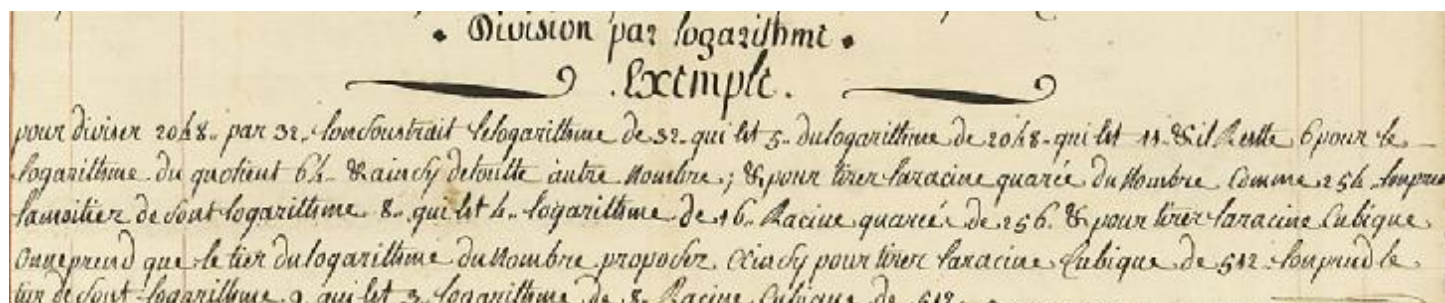 . Division par logarithme .
. Exemple .
pour diviser 2048.. par 32.. lon Soustrait le logarithme de 32.. qui Est 5.. du logarithme de 2048.. qui Est 11.. & il Reste 6 pour le
logarithme du quotient 64.. & ainsy de toutte autre Nombre ; & pour tirer la racine quarée du Nombre Comme 256 lon prend
la moitier de sont logarithme 8.. qui Est 4.. logarithme de 16.. Racine quarée de 256. & pour tirer la racine Cubique
on ne prend que le tier du logarithme du Nombre proposer. Ainsy pour tirer la racine Cubique de 512.. lon prend le
tier de sont logarithme 9 qui Est 3 logarithme de 8.. Racine Cubique de 512